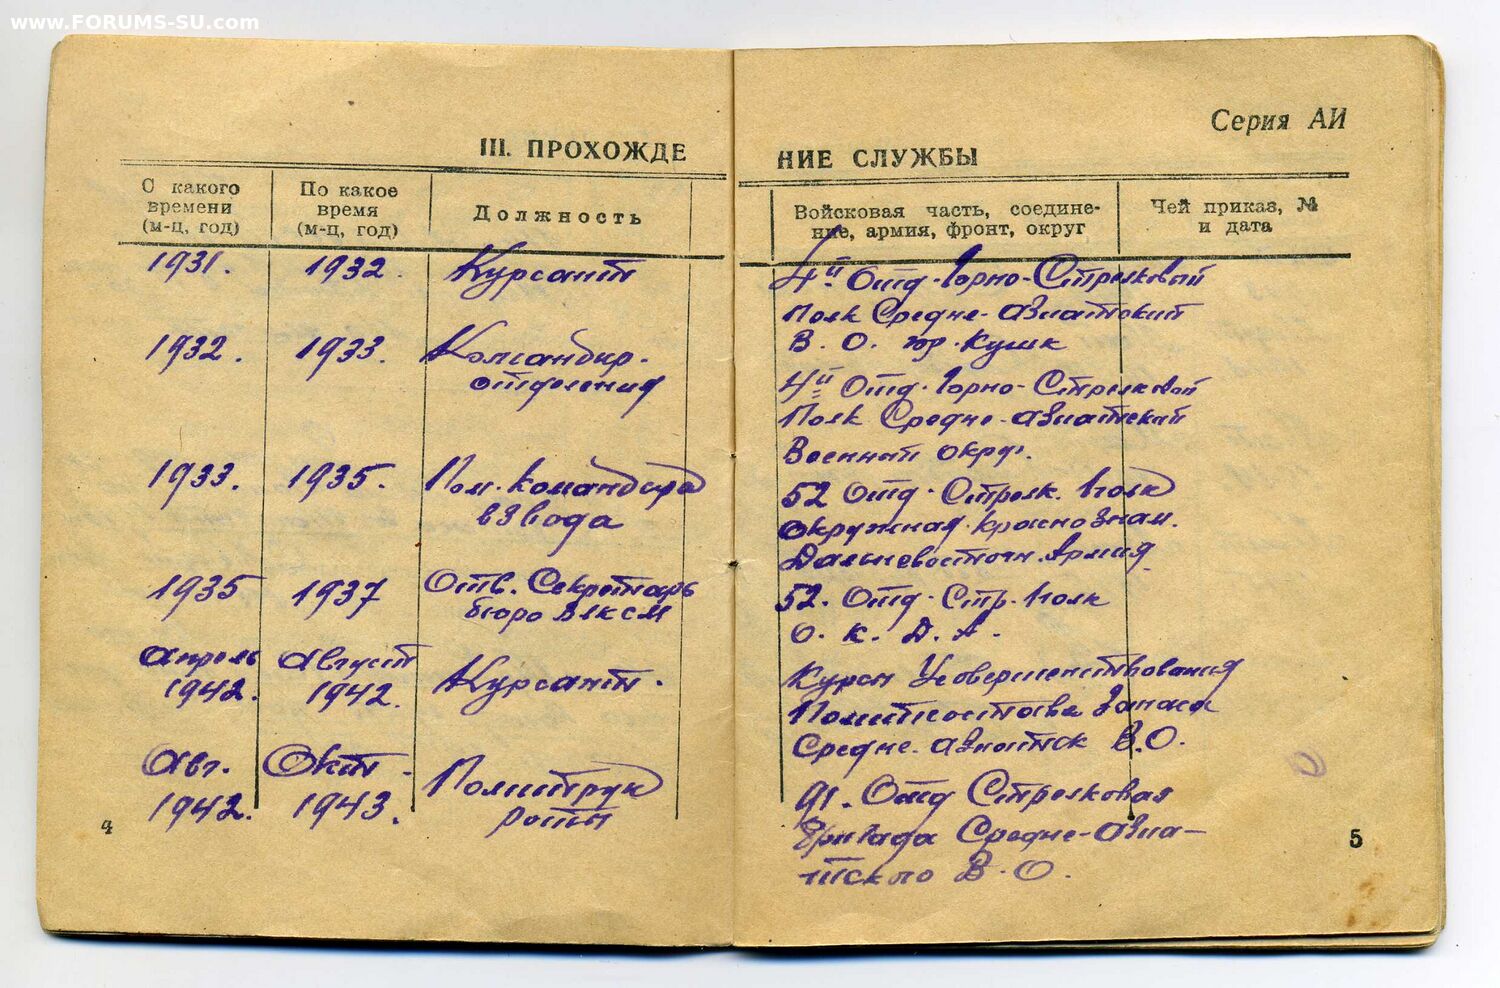 www.FORUMS-SU.com
Серия АИ
III. ПРОХОЖДЕ
НИЕ СЛУЖБЫ
С какого времени (м-ц, год)
По какое время (м-ц, год)
Должность
Войсковая часть, соедине-
ние, армия, фронт, округ
Чей приказ, №
и дата
1931. 1932. Курсант
4й Отд. Горно-Стрелковый
полк Средне-Азиатский
В. О. гор. Кушк
1932. 1933. Командир.
отделения
4й Отд. Горно-Стрелковой
Полк Средне-Азиатский
Военный округ.
1933. 1935. Пом. командира
взвода
52 Отд. Стрелк. полк
окружная краснознам.
Дальневосточн. Армия
1935 1937 Отв. Секретарь
бюро ВЛКСМ
52. Отд. Стр. полк
О. К. Д. А.
апрель 1942. август 1942. Курсант.
Курсы Усовершенствования
Политсостава Запаса
Средне. Азиатск В.О.
Авг. 1942. Окт. 1943. Политрук
роты
91. Отд Стрелковая
Бригада Средне-Азиа-
тского В. О.
4
5